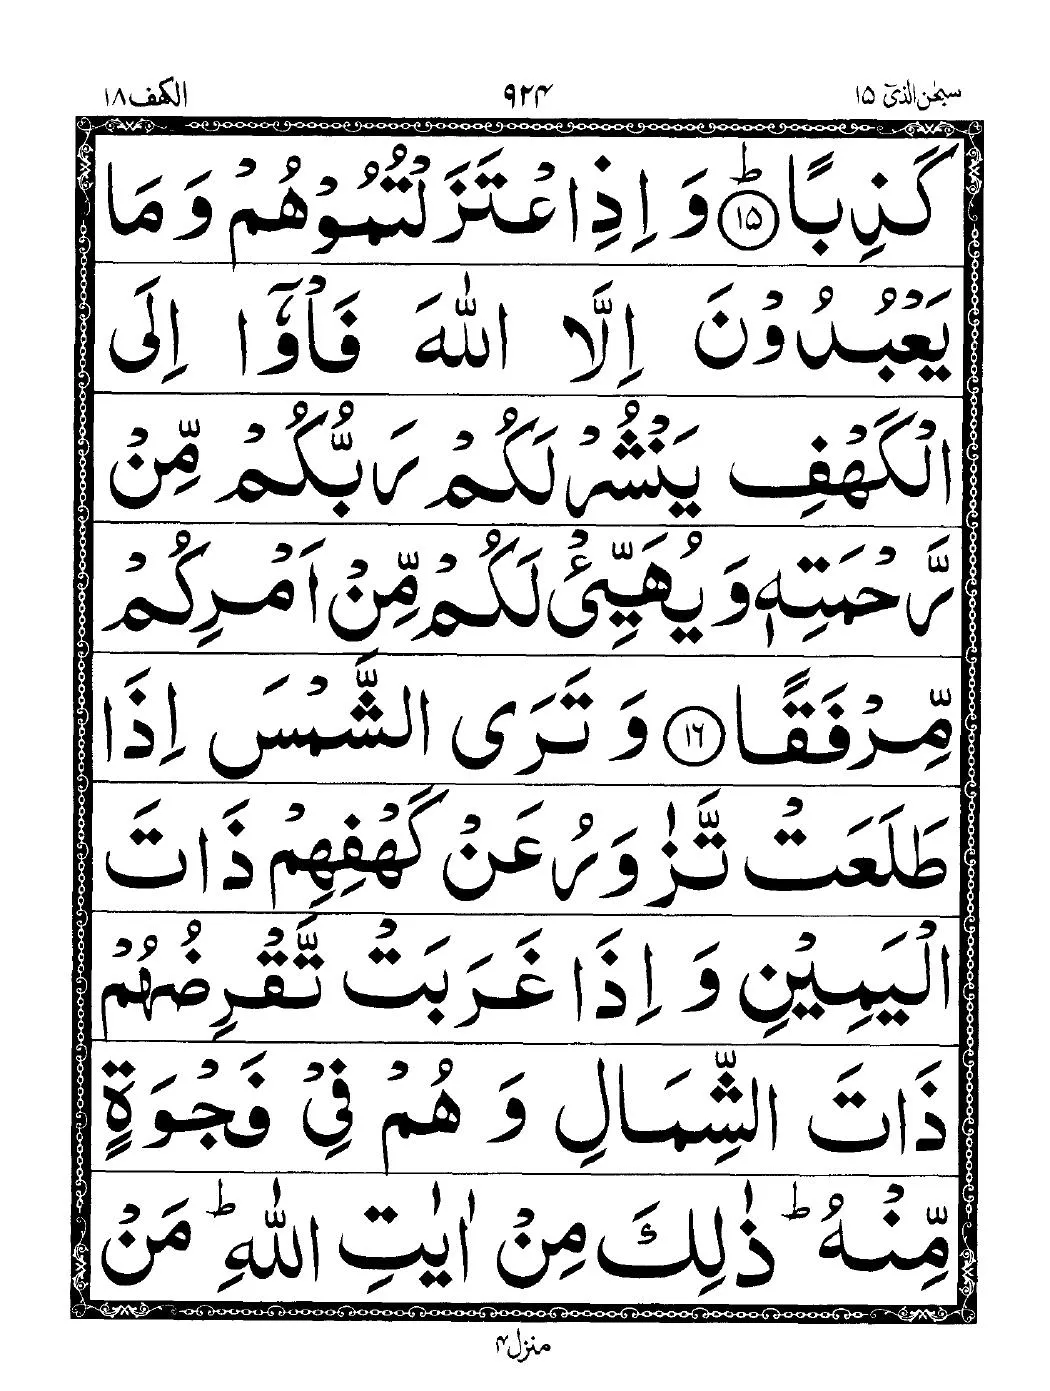 سبحٰن الذیٓ ۱۵
۹۲۴
الكهف ۱۸
كَذِبًا ؕ‏﴿۱۵﴾ وَ اِذِ اعْتَزَلْتُمُوْهُمْ وَ مَا
يَعْبُدُوْنَ اِلَّا اللّٰهَ فَاْوٗۤا اِلَى
الْكَهْفِ يَنْشُرْ لَكُمْ رَبُّكُمْ مِّنْ
رَّحْمَتِهٖ وَ يُهَيِّئْ لَكُمْ مِّنْ اَمْرِكُمْ
مِّرْفَقًا ﴿۱۶﴾ وَ تَرَى الشَّمْسَ اِذَا
طَلَعَتْ تَّزٰوَرُ عَنْ كَهْفِهِمْ ذَاتَ
الْيَمِيْنِ وَ اِذَا غَرَبَتْ تَّقْرِضُهُمْ
ذَاتَ الشِّمَالِ وَ هُمْ فِيْ فَجْوَةٍ
مِّنْهُ ؕ ذٰلِكَ مِنْ اٰيٰتِ اللّٰهِ ؕ مَنْ
منزل ۴